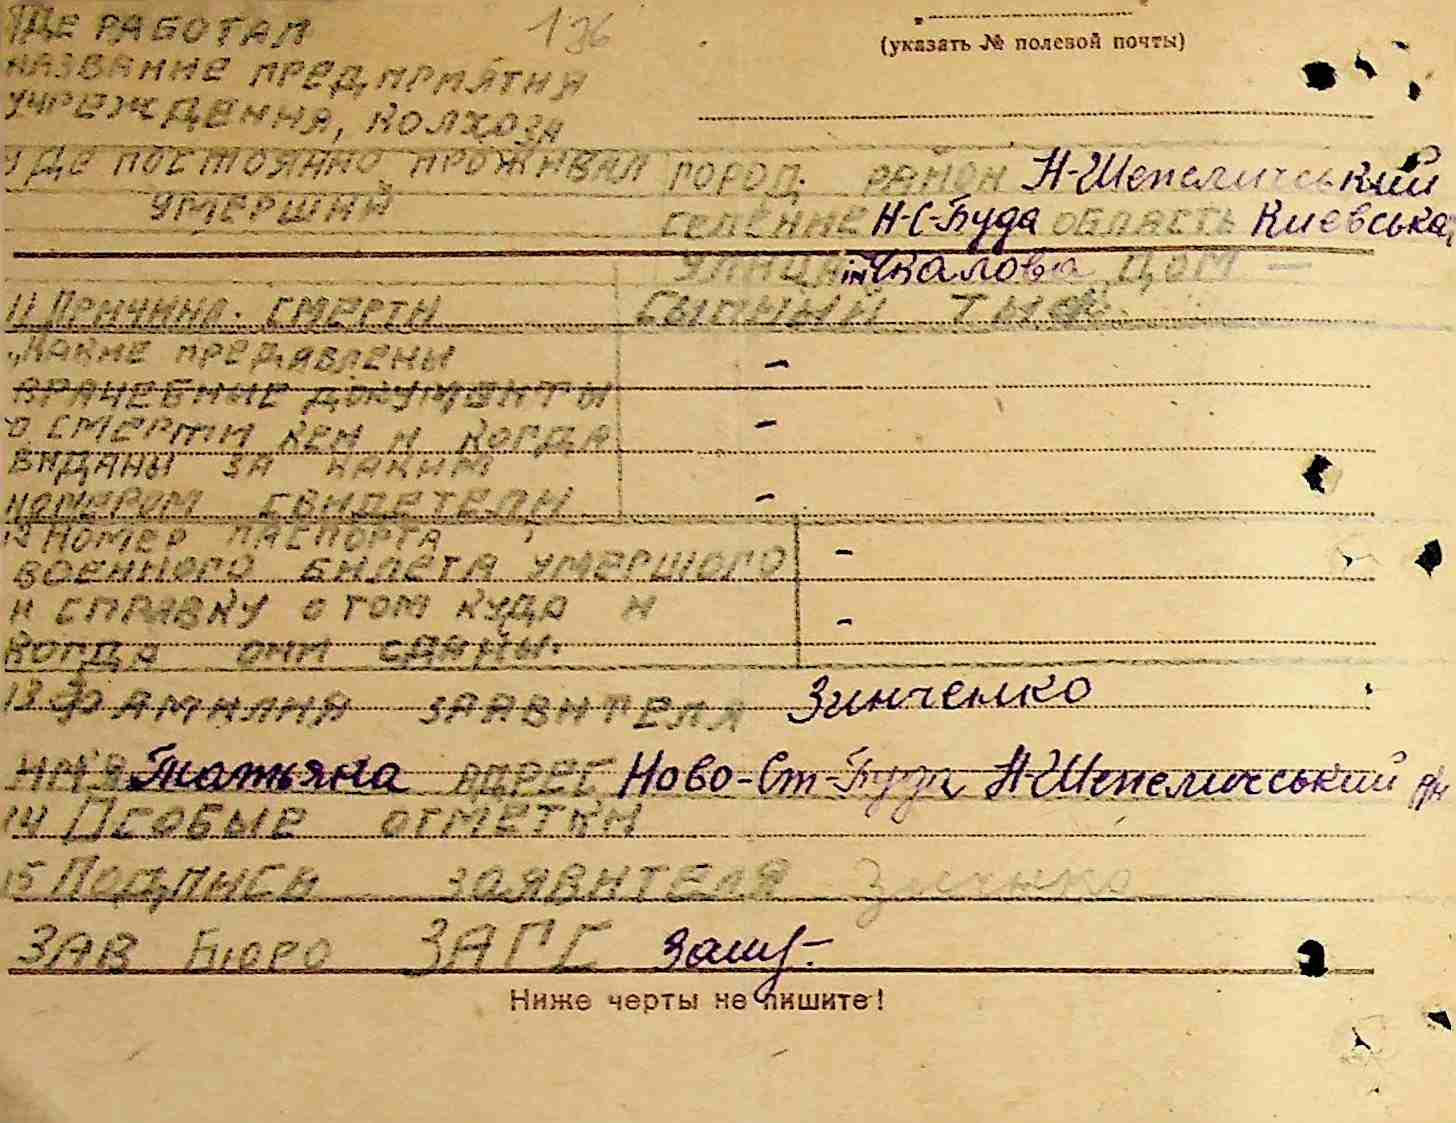 где работал 136
(указать № полевой почты)
название предприятия
учреждения, колхоза
где постоянно проживал город район Н-Шепеличський
умерший селение Н-С-Буда область Киевська
улица Чкалова дом —
11 Причина смерти сыпный тиф.
какие предявлены —
врачебные документы
о смерти кем и когда —
виданы за каким
номером свидетели —
12 номер паспорта, —
военного билета умершого
и справку о том куда и —
когда они сданы.
13 Фамилия заявителя Зинченко
имя Татьяна адрес Ново-Ст-Буда, Н-Шепеличський р/н
14 Особые отметки
15 Подпысь заявителя
Зав бюро ЗАГС
Ниже черты не пишите!